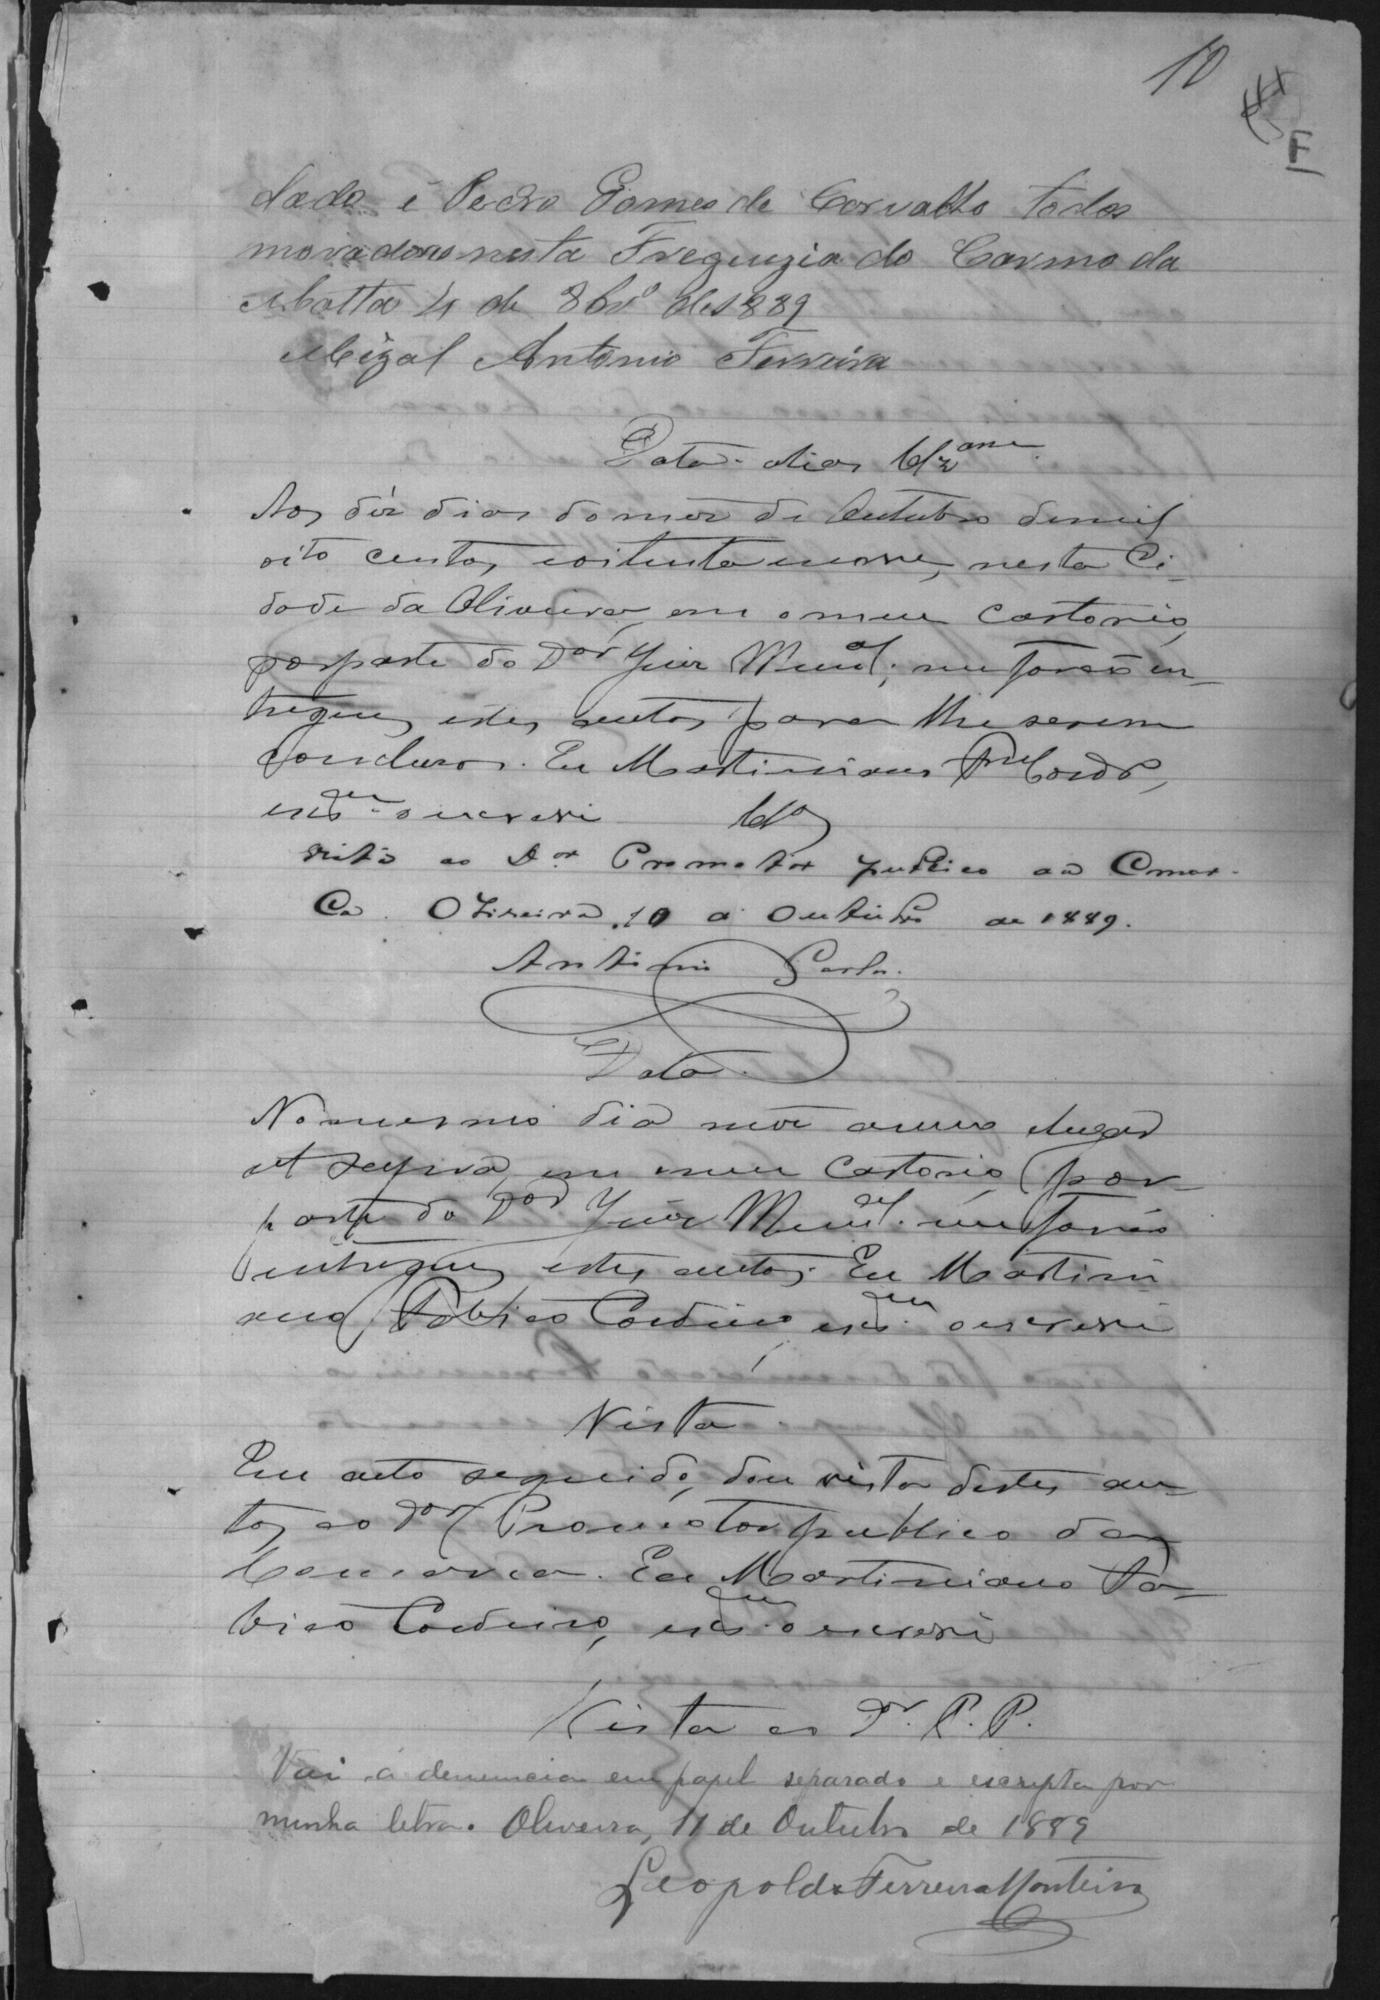 10
F
dado e Pedro Gomes de Carvalho todos
moradores nesta Freguezia do Carmo da
Matta 4 de 8brº de 1889
Migal Antonio Ferreira
Data
Aos dez dias do mez de Outubro de mil
oito centos, e oitenta e nove, nesta Ci-
dade da Oliveira, em o meu Cartorio,
por parte do Dor Juiz Munal, me forão en-
tregues, estes, autos, para lhe serem
Conclusos. Eu Martiniano Cordº,
escam o escrevi Clos
Vista ao Dor Promotor publico da Comar-
Ca. Oliveira, 10 de Outubro de 1889.
Antonio
Data
No mesmo dia mez anno e lugar
em meu Cartorio, por
parte do Dor Juiz Munal. me forão
entregues estes autos. Eu Martini
ano Fabiano Cordeiro, escam o escrevi
Vista
Em acto seguido, dou vista destes au-
tos, ao Dor Promotor publico da
Comarca. Eu Martiniano Fa-
Cordeiro, escam o escrevi
Vista ao Dr. P. P.
Vai a denuncia em papel separado e escripta por
minha letra. Oliveira, 11 de Outubro de 1889
Leopoldo Ferreira Monteiro